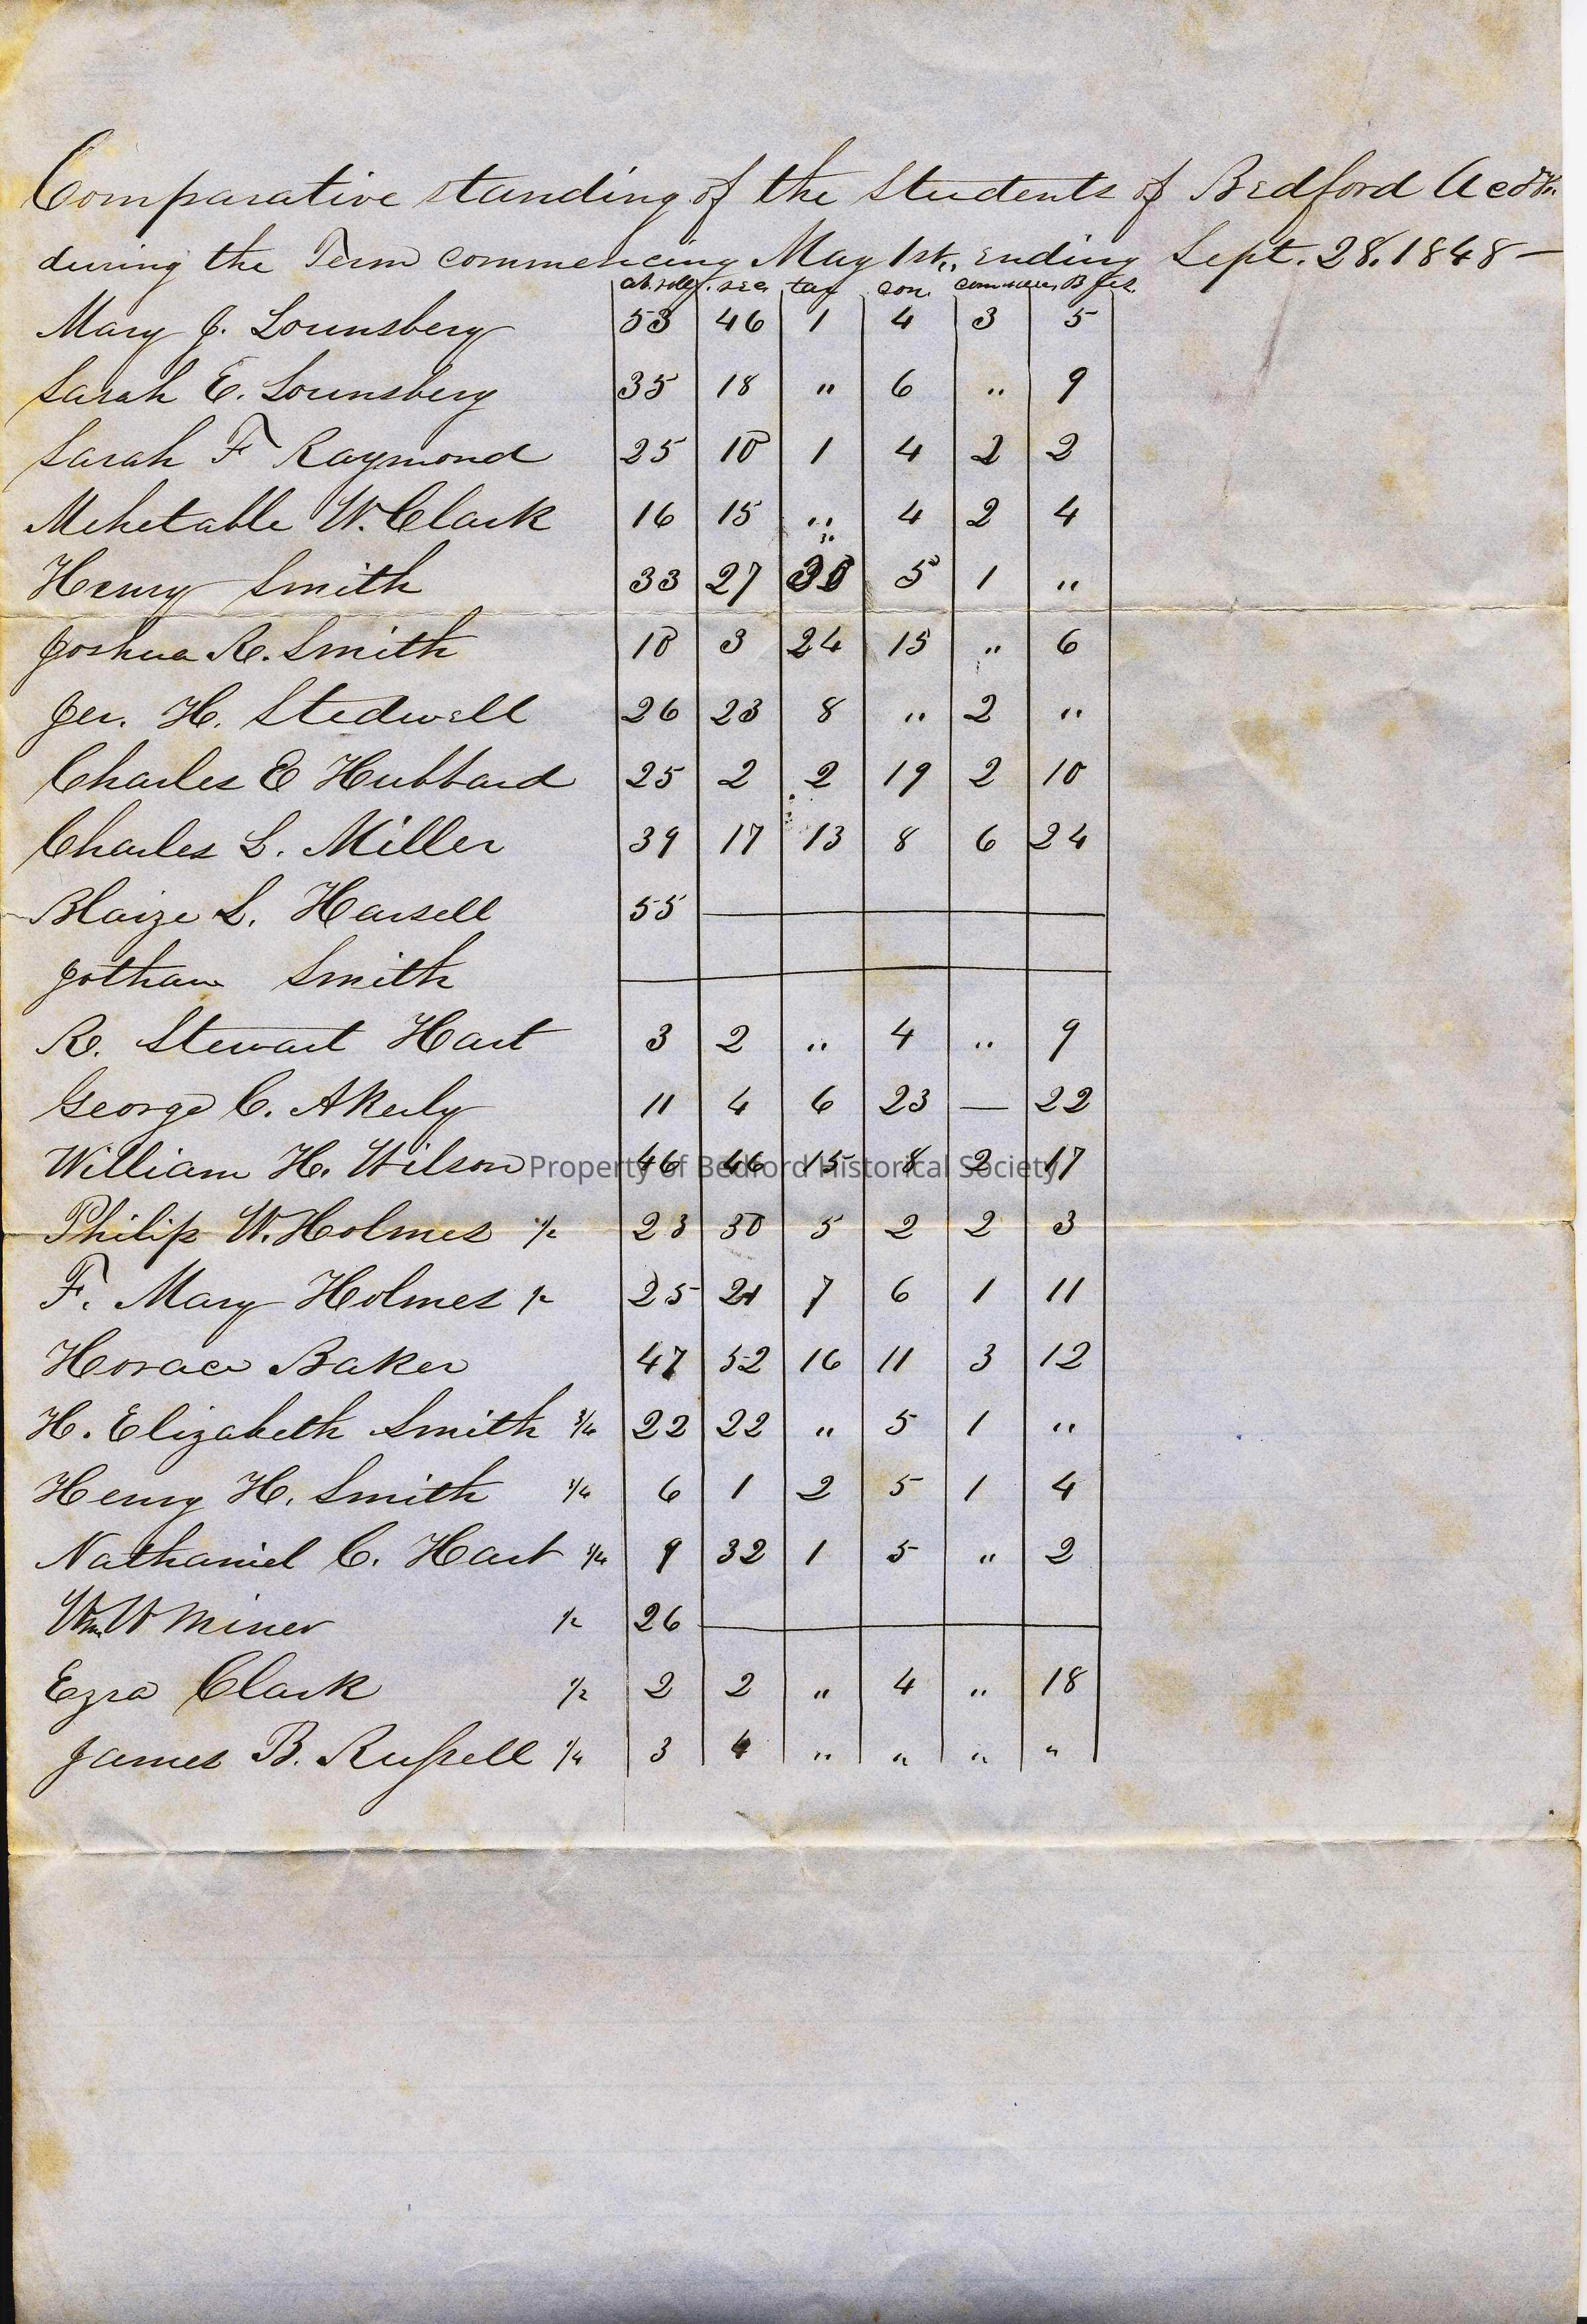 Comparative standing of the Students of Bedford
during the Term commencing May 1st, ending Sept. 28. 1848 —
rec tar con.
Mary J. Lounsbery 53 46 1 4 3 5
Sarah E. Lounsbery 35 18 " 6 " 9
Sarah F Raymond 25 10 1 4 2 2
Mehetable W. Clark 16 15 " 4 2 4
Henry Smith 33 27 30 5 1 "
Joshua R. Smith 10 3 24 15 " 6
Jer. H. Stedwell 26 23 8 " 2 "
Charles E Hubbard 25 2 2 19 2 10
Charles L. Miller 39 17 13 8 6 24
Blaize L. Harsell 55 —
Jotham Smith —
R. Stewart Hart 3 2 " 4 " 9
George C. Akerly 11 4 6 23 — 22
William H. Wilson 46 46 15 8 2 17
Property of Bedford Historical Society
Philip W. Holmes 1/2 23 30 5 2 2 3
F. Mary Holmes 1/2 25 21 7 6 1 11
Horace Baker 47 52 16 11 3 12
H. Elizabeth Smith 3/4 22 22 " 5 1 "
Henry H. Smith 1/4 6 1 2 5 1 4
Nathaniel C. Hart 1/4 9 32 1 5 " 2
Wm W Miner 1/2 26 —
Ezra Clark 1/2 2 2 " 4 " 18
James B. Russell 1/4 3 4 " " " "